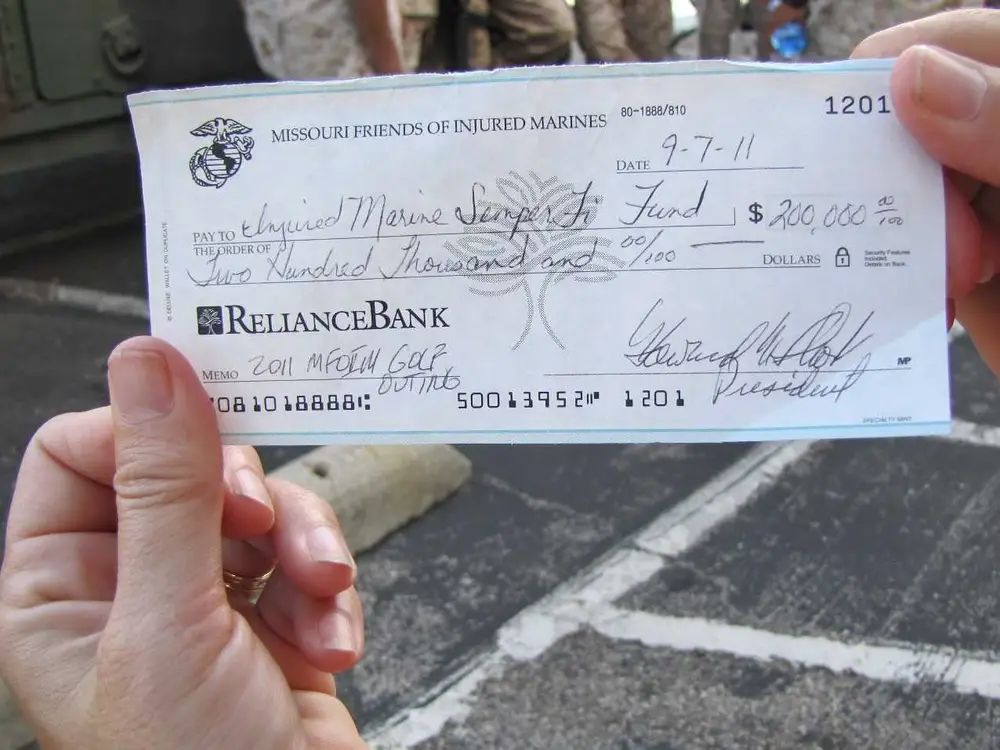 MISSOURI FRIENDS OF INJURED MARINES
80-1888/810
1201
DATE 9-7-11
PAY TO THE ORDER OF Injured Marine Semper Fi Fund $ 200,000 00/100
Two Hundred Thousand and 00/100 DOLLARS
Security Features Included. Details on Back.
RELIANCEBANK
MEMO 2011 MFOIM GOLF OUTING
MP
President
081018888 500139952 1201
SPECIALTY MINT